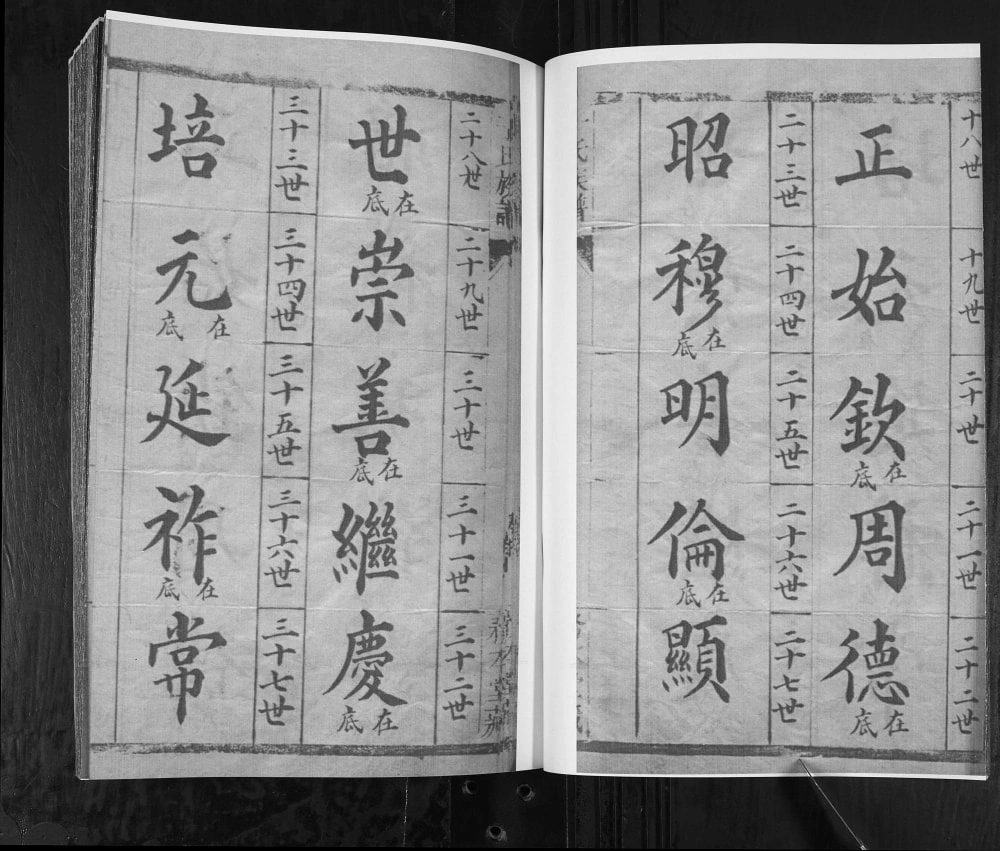 十八世 十九世 二十世 二十一世 二十二世
正 始 欽在底 周 德在底
二十三世 二十四世 二十五世 二十六世 二十七世
昭 穆在底 明 倫在底 顯
氏族譜
族譜
二十八世 二十九世 三十世 三十一世 三十二世
世在底 崇 善在底 繼 慶在底
三十三世 三十四世 三十五世 三十六世 三十七世
培 元在底 延 祚在底 常